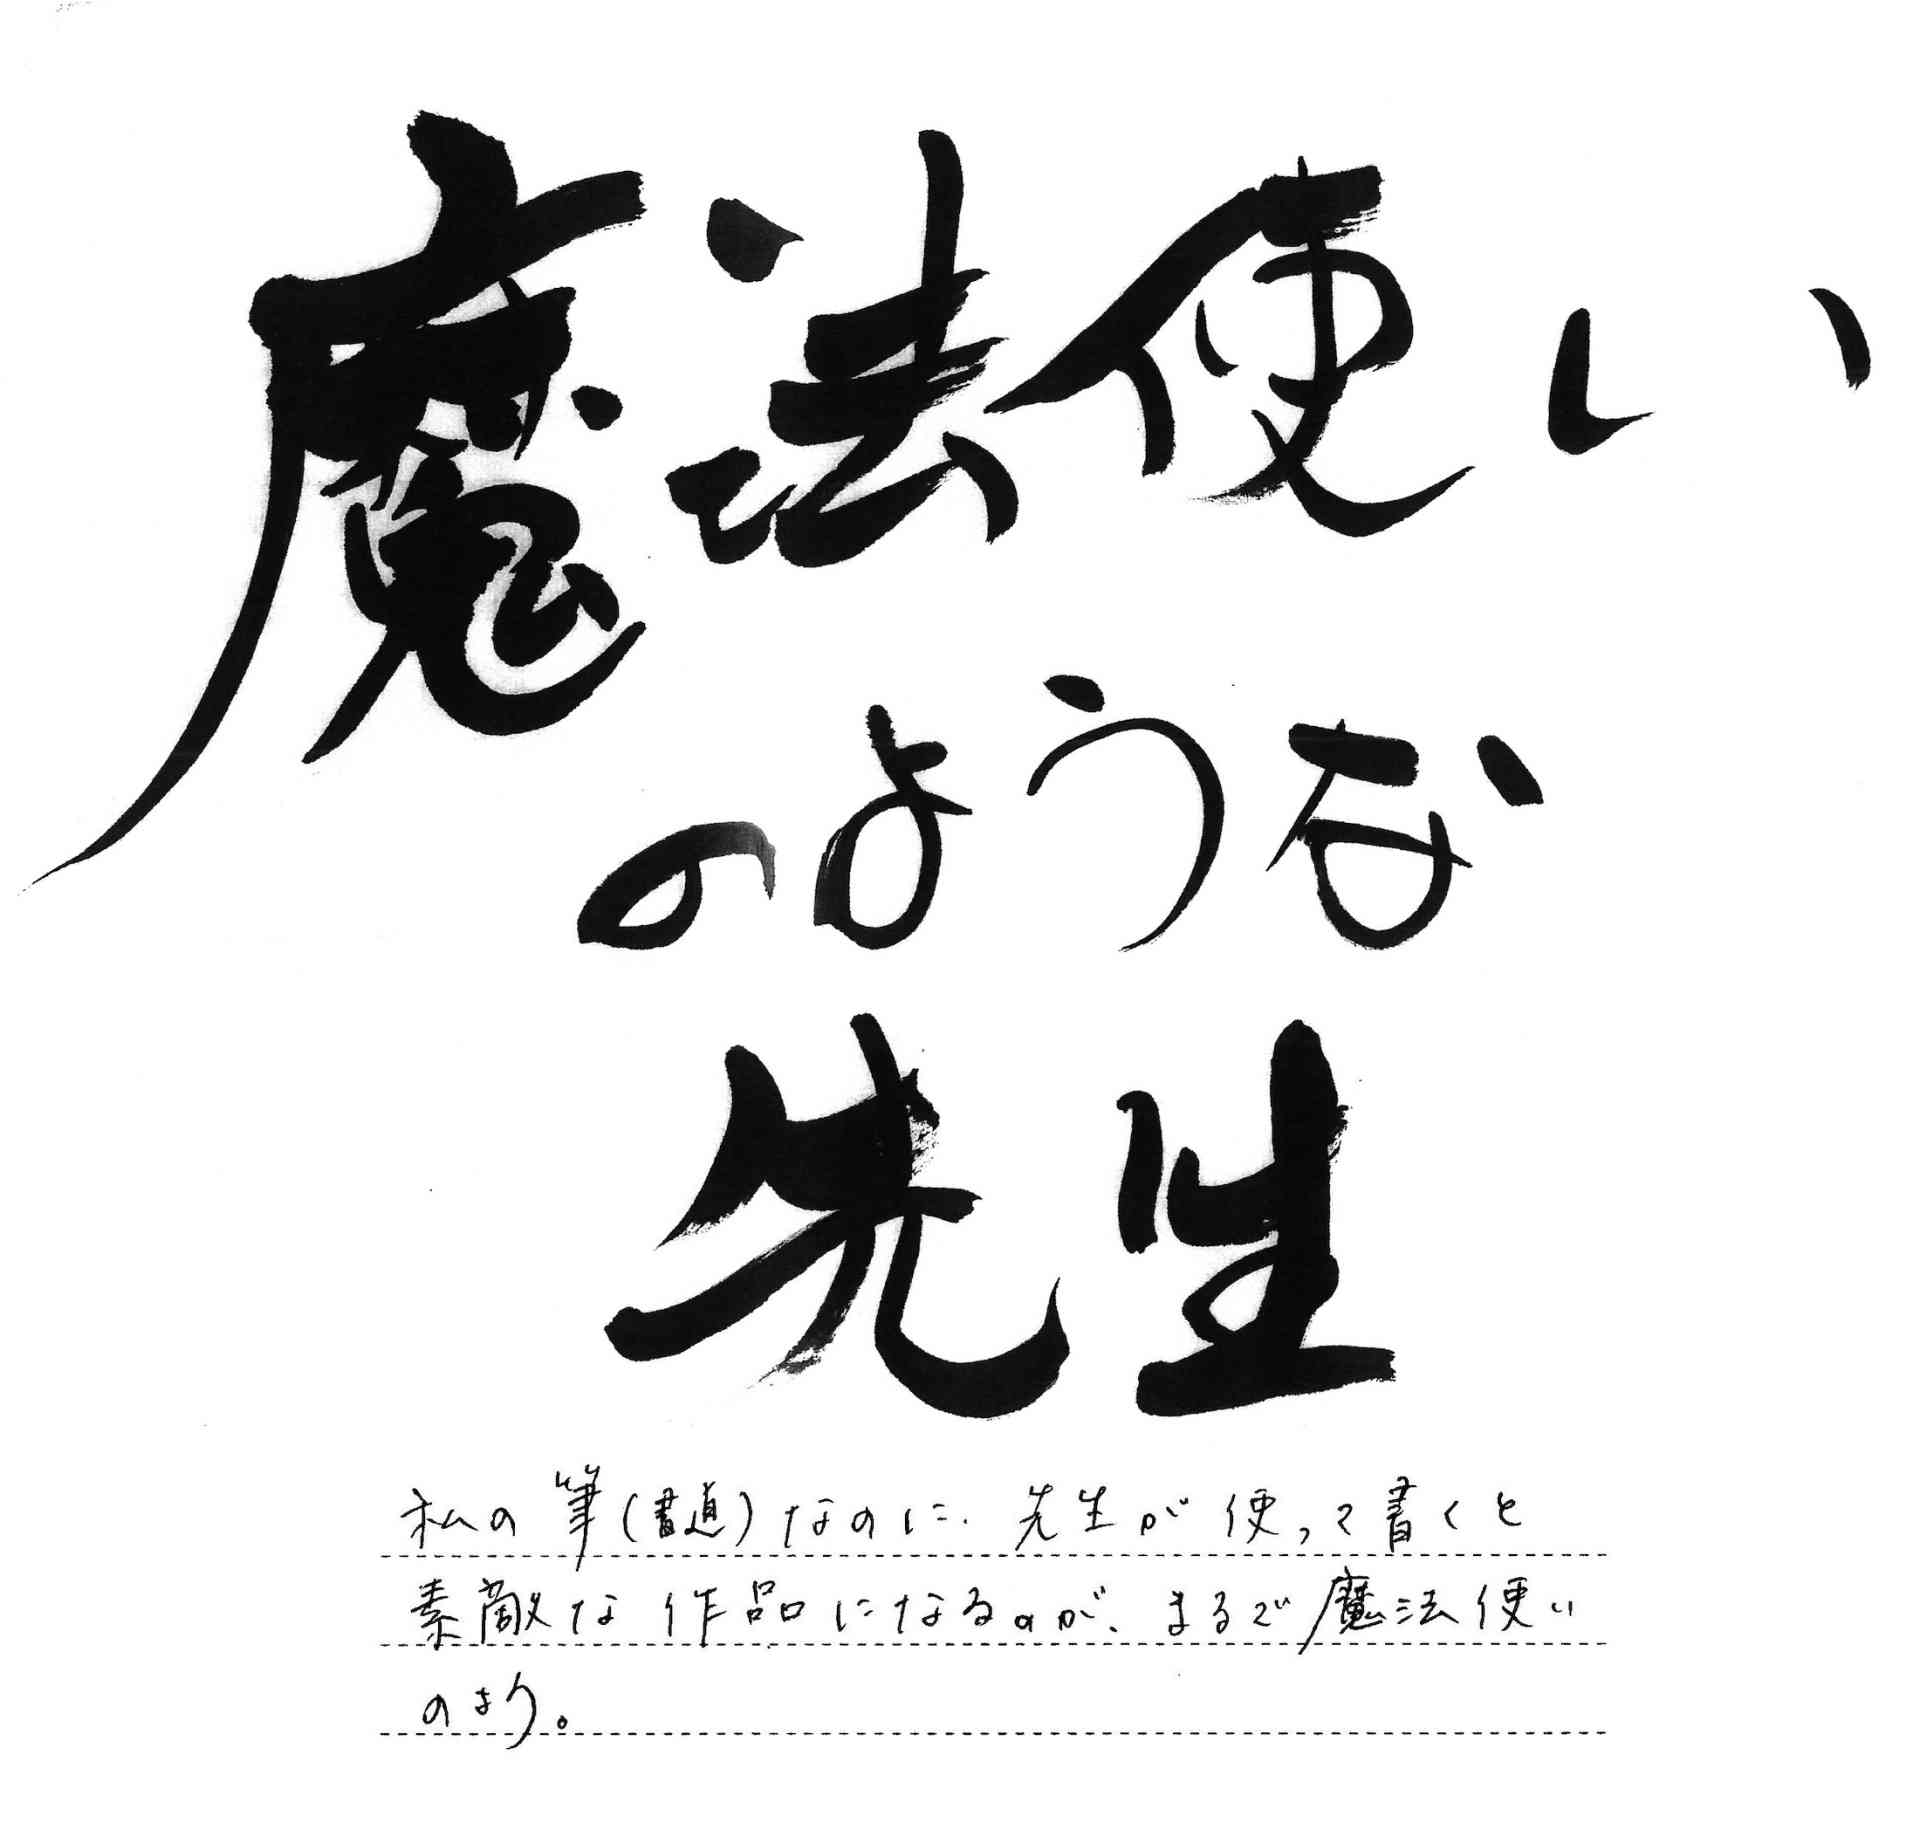 魔法使い
のような
先生
私の筆(書道)なのに、先生が使って書くと
素敵な作品になるのが、まるで魔法使い
のよう。